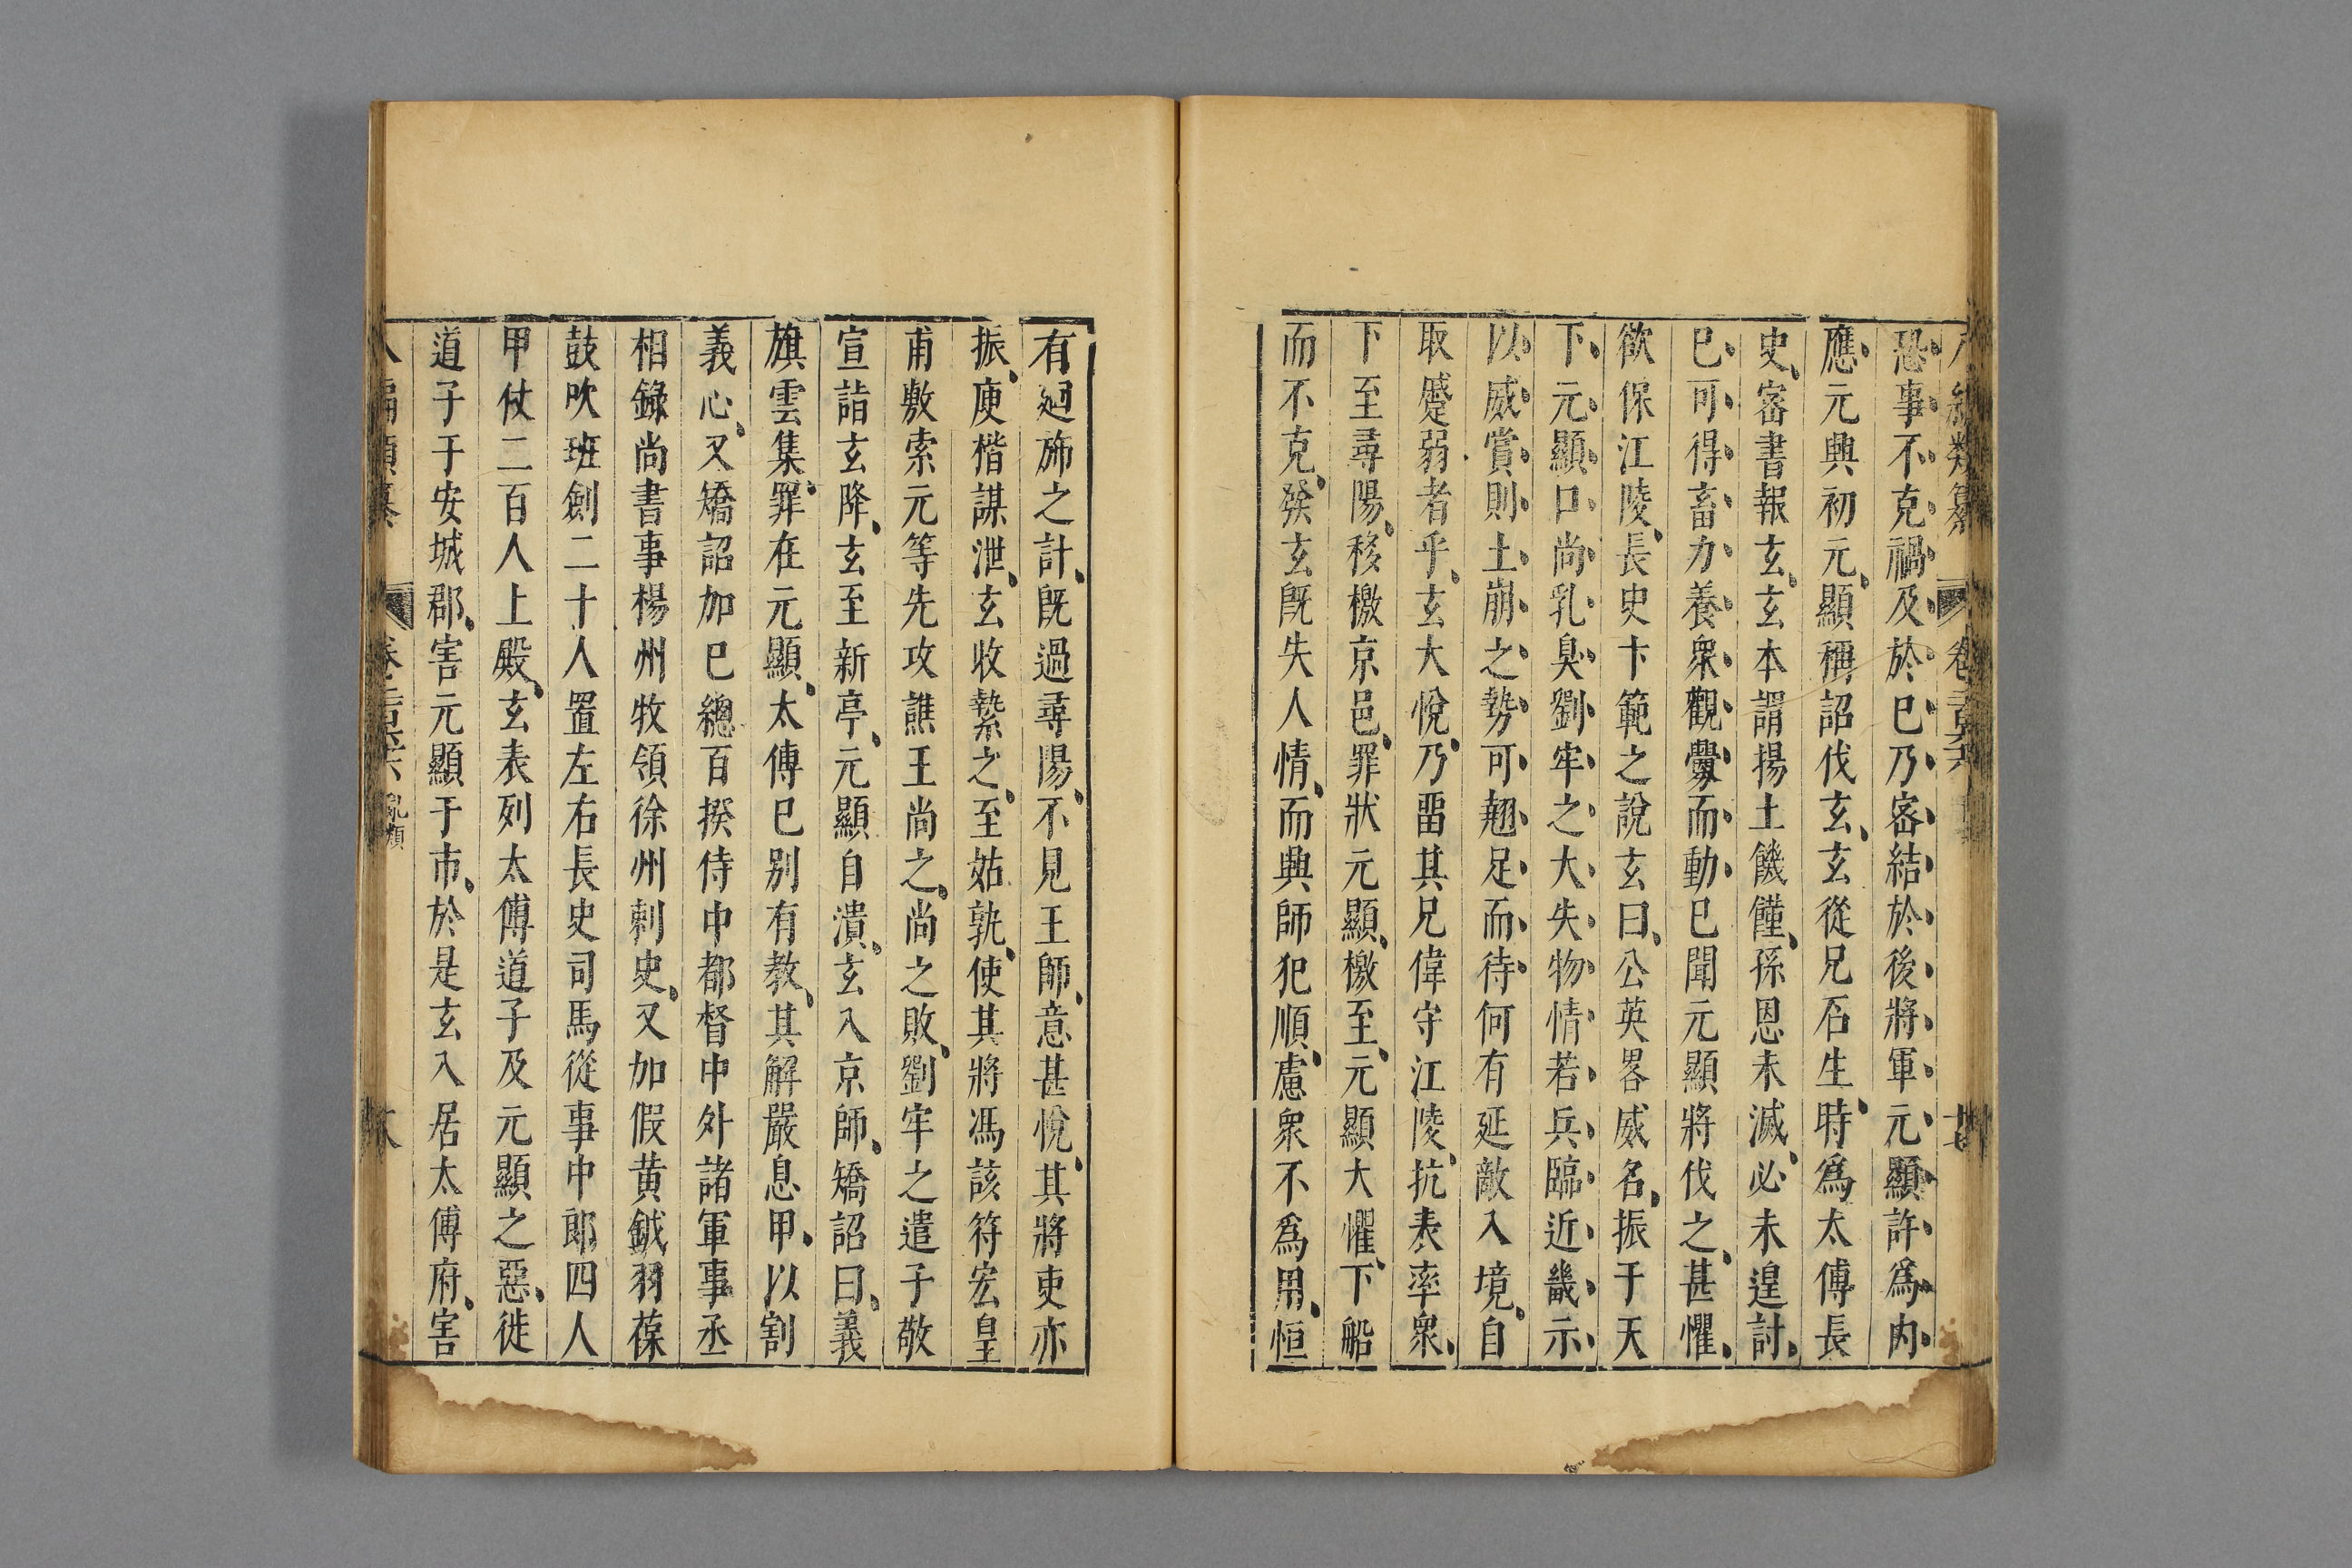 恐事不克禍及於已乃密結於後將軍元顯許爲內
應元興初元顯稱詔伐玄玄從兄石生時爲太傅長
史密書報玄玄本謂揚土饑饉孫恩未滅必未遑討
已可得畜力養衆觀釁而動已聞元顯將伐之甚懼
欲保江陵長史卞範之說玄曰公英畧威名振于天
下元顯口尚乳臭劉牢之大失物情若兵臨近畿示
以威賞則土崩之勢可翹足而待何有延敵入境自
取蹙弱者乎玄大悅乃畱其兄偉守江陵抗表率衆
下至尋陽移檄京邑罪狀元顯檄至元顯大懼下船
而不克發玄旣失人情而興師犯順慮衆不爲用恒
有廻斾之計旣過尋陽不見王師意甚悅其將吏亦
振庾楷謀泄玄收縶之至姑孰使其將馮該符宏皇
甫敷索元等先攻譙王尚之尚之敗劉牢之遣子敬
宣詣玄降玄至新亭元顯自潰玄入京師矯詔曰義
旗雲集罪在元顯太傅已别有教其解嚴息甲以割
義心又矯詔加已總百揆侍中都督中外諸軍事丞
相錄尚書事楊州牧領徐州刺史又加假黄鉞羽葆
鼓吹班劍二十人置左右長史司馬從事中郎四人
甲仗二百人上殿玄表列太傅道子及元顯之惡徙
道子于安城郡害元顯于市於是玄入居太傅府害